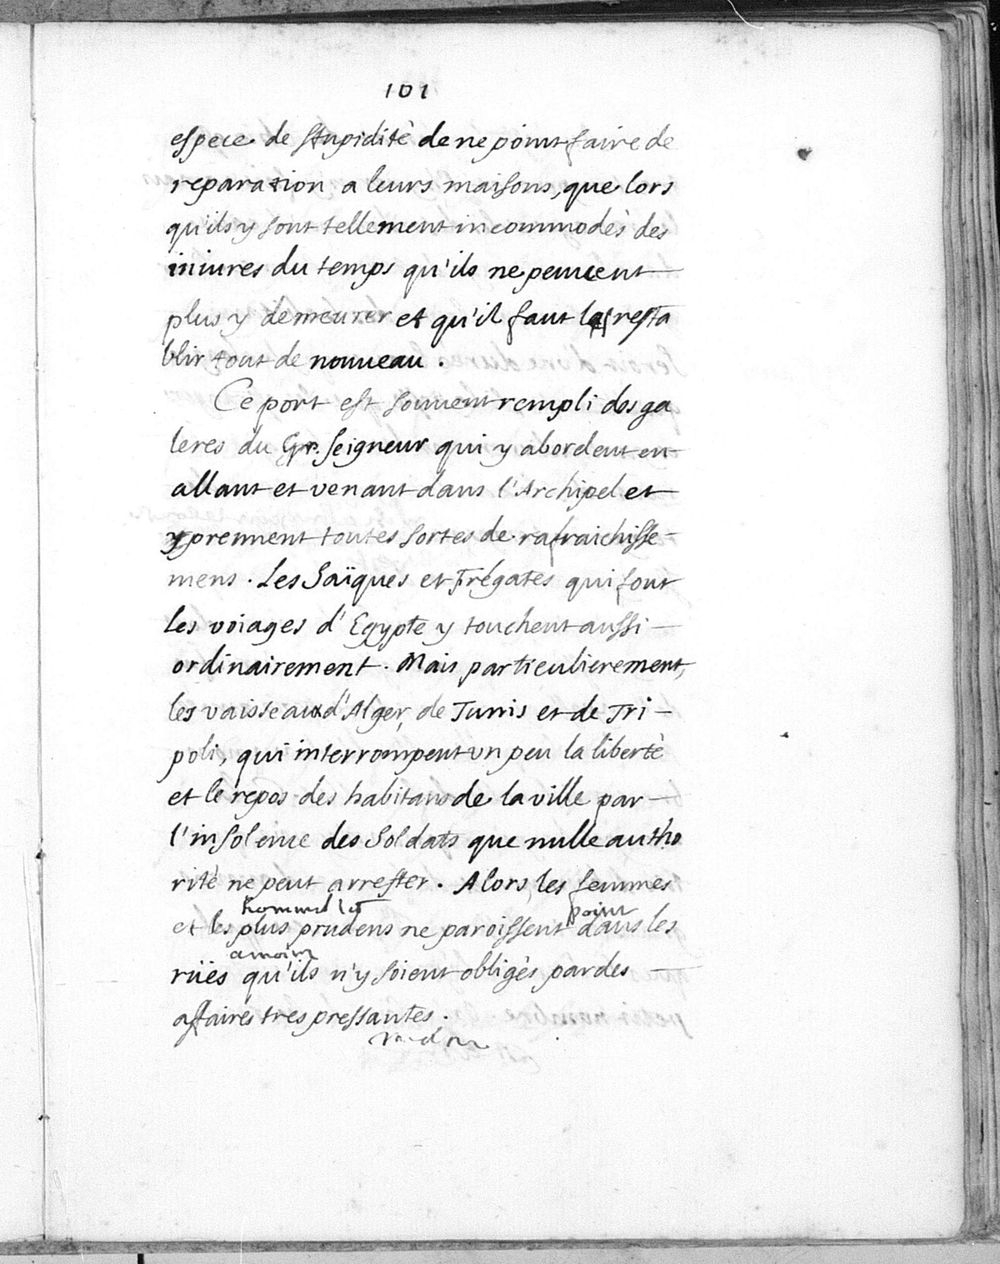 101
espece de stupidité de ne point faire de
reparation a leurs maisons, que lors
qu'ils y sont tellement incommodés des
iniures du temps qu'ils ne peuuent
plus y demeurer et qu'il faut les resta
blir tout de nouueau.
Ce port est souuent rempli des ga
leres du Gr. Seigneur qui y abordent en
allant et venant dans l'Archipel et
y prennent toutes sortes de rafraichisse-
mens. Les Saïques et Frégates qui font
les voiages d'Egypte y touchent aussi
ordinairement. Mais particulierement,
les vaisseaux d'Alger, de Tunis et de Tri-
poli, qui interrompent un peu la liberté
et le repos des habitans de la ville par
l'insolence des Soldats que nulle autho
rité ne peut arrester. Alors, les femmes
point
et les plus prudens ne paroissent dans les
amoins
rües qu'ils n'y soient obligés par des
affaires tres pressantes.